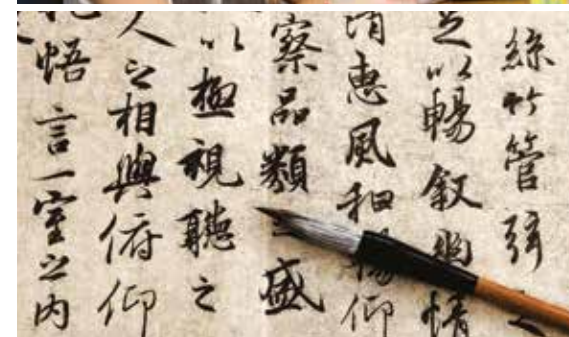 絲竹管弦之
足以暢叙幽情
清惠風和暢仰
察品類之盛
以極視聽之
人之相與俯仰
抱悟言一室之内